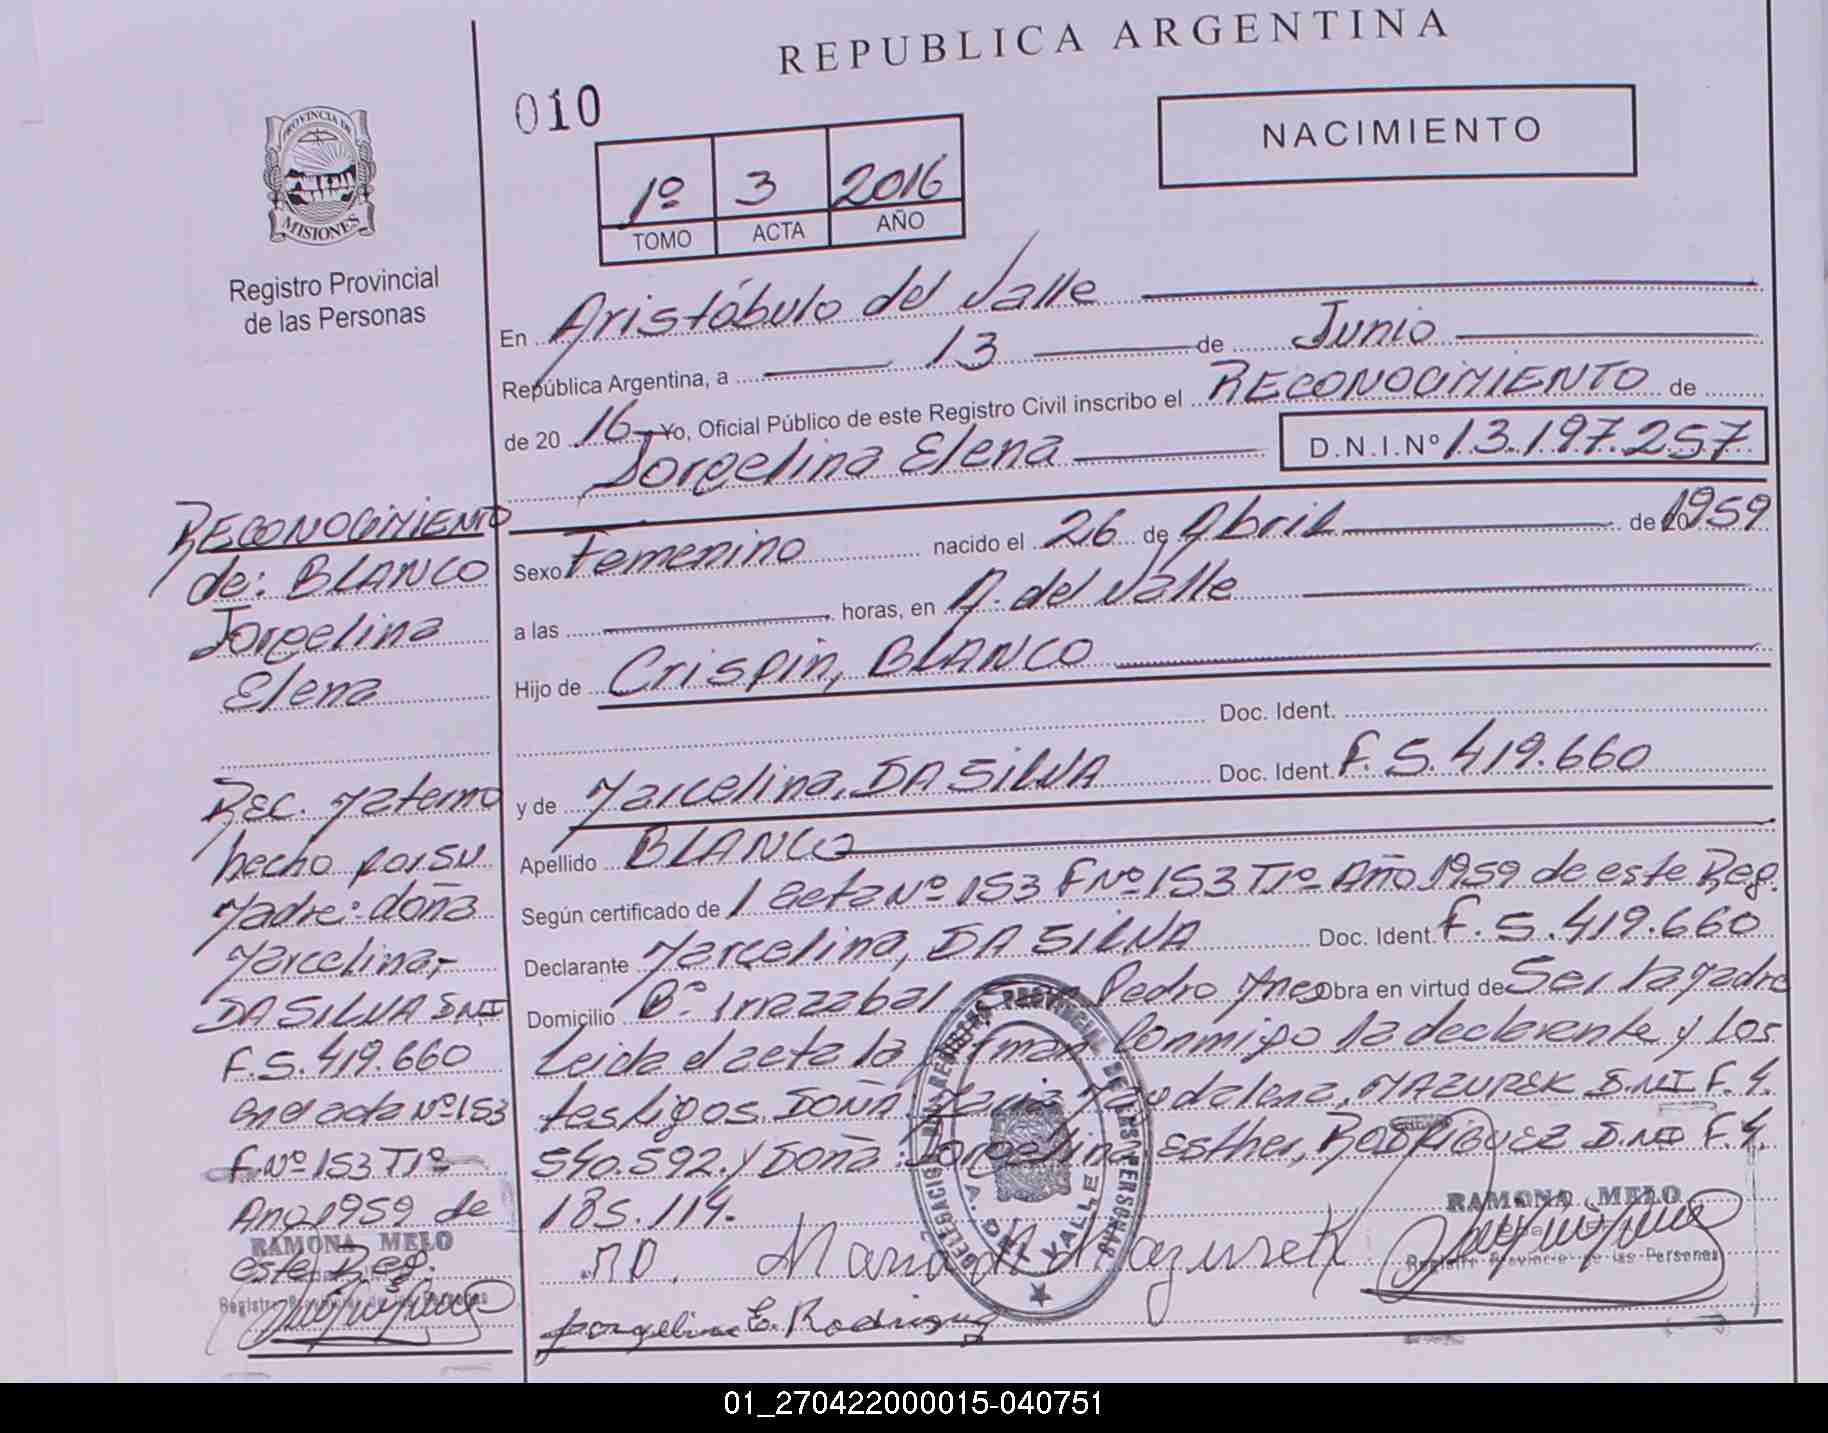 REPUBLICA ARGENTINA
010
NACIMIENTO
PROVINCIA DE
MISIONES
1º 3 2016
TOMO ACTA AÑO
Registro Provincial
de las Personas
En Aristóbulo del Valle
República Argentina, a 13 de Junio
de 20 16 Yo, Oficial Público de este Registro Civil inscribo el RECONOCIMIENTO de
Jorgelina Elena D.N.I.Nº 13.197.257
Sexo Femenino nacido el 26 de Abril de 20 1959
a las horas, en A. del Valle
Hijo de Crispin, BLANCO
Doc. Ident.
y de Marcelina, DA SILVA Doc. Ident. F. 5.419.660
Apellido BLANCO
Según certificado de / acta Nº 153 FNº 153 T1º Año 1959 de este Reg.
Declarante Marcelina, DA SILVA Doc. Ident. F. 5.419.660
Domicilio Bº Irrazabal Pedro Obra en virtud de Ser la Madre
Leida el acta la firman Conmigo la declarante y Los
testigos. DOÑA Maria Magdalena, MAZUREK D.NI F. 4.
540.592. y Doña: Jorgelina Esther, RODRIGUEZ D.NI F. 4.
185.114.
RECONOCIMIENTO
de: BLANCO
Jorgelina
Elena
Rec. Materno
hecho por su
Madre: doña
Marcelina,-
DA SILVA D.NI
F. 5.419.660
en el acta Nº 153
F.Nº 153 T1º
Año 1959 de
este Reg.
RAMONA MELO
Registro Provincial de las Personas
M.D. Maria M Mazurek
Jorgelina E. Rodriguez
RAMONA MELO
Registro Provincial de las Personas
DELEGACION REGISTRO PROVINCIAL DE LAS PERSONAS
A. DEL VALLE
01_270422000015-040751